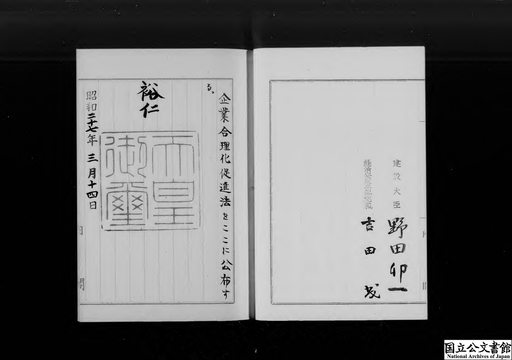 建設大臣
野田卯一
経済安定本部総裁
吉田茂
企業合理化促進法をここに公布す
る。
裕仁
天皇御璽
昭和二十七年三月十四日
国立公文書館
National Archives of Japan